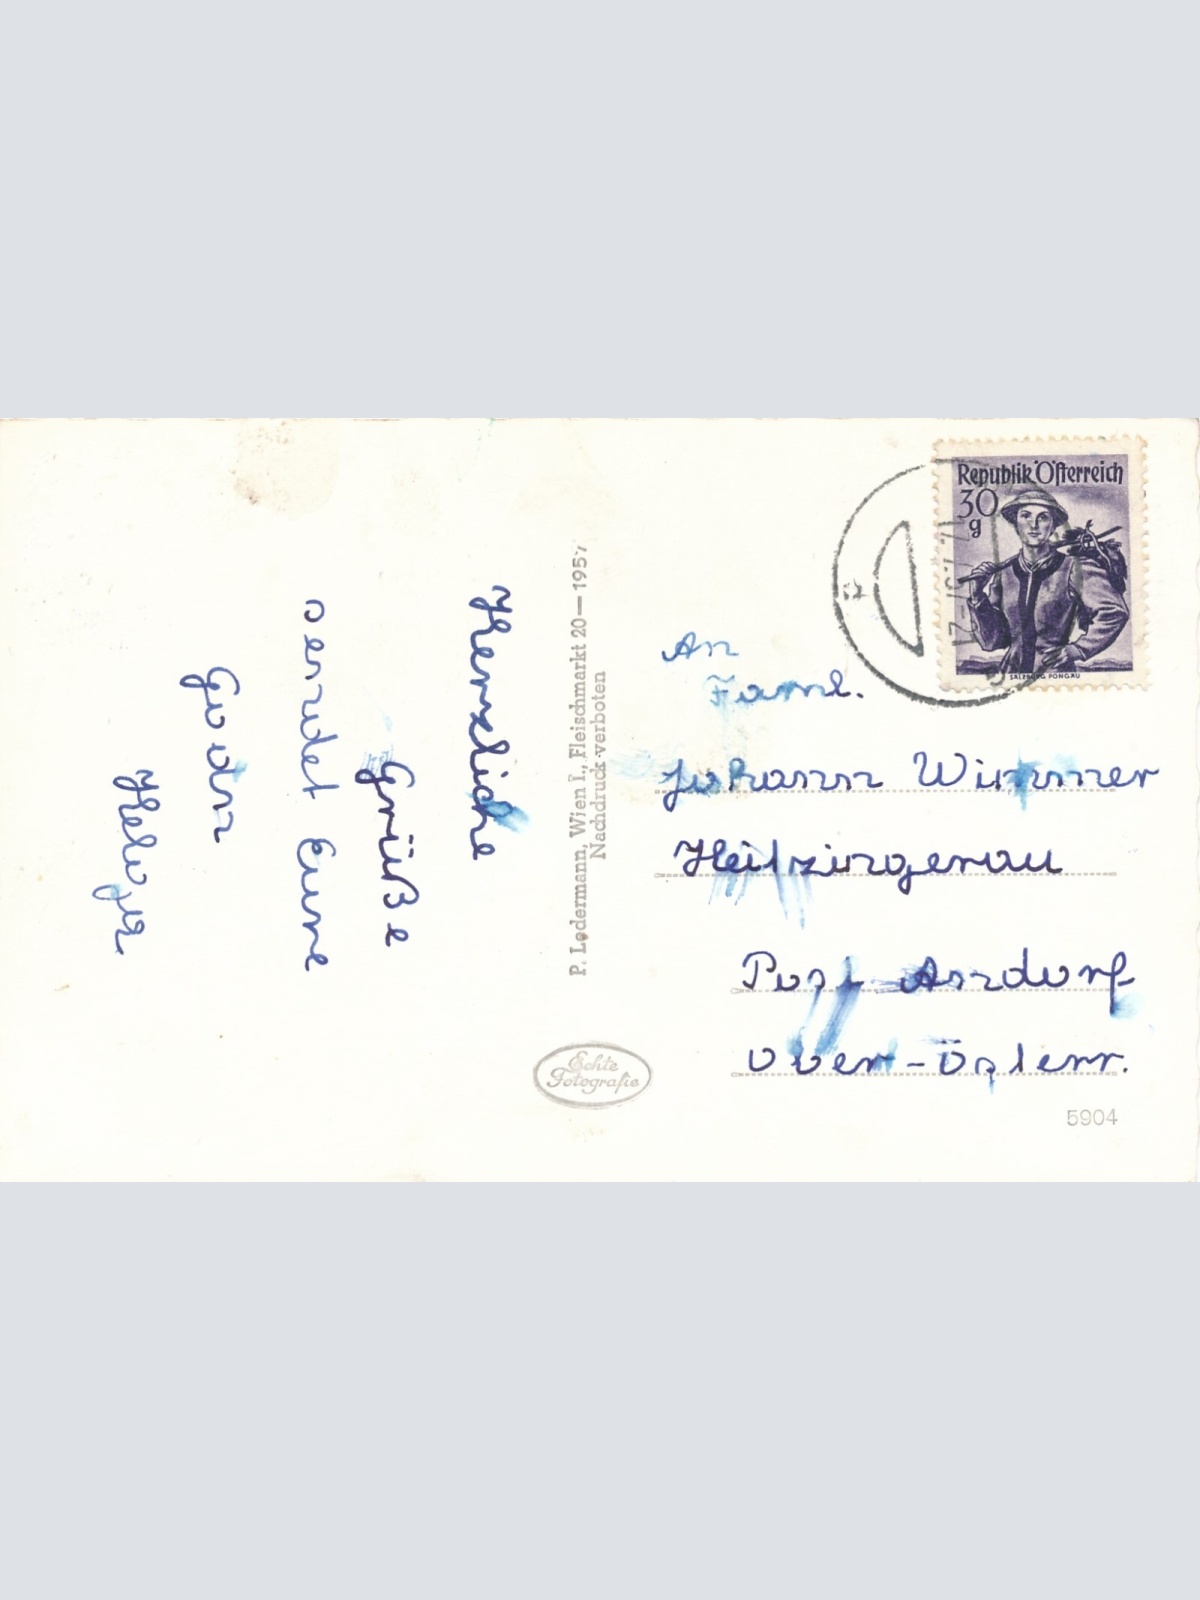 Herzliche
Grüße
sendet Eure
Godn
P. Ledermann, Wien I., Fleischmarkt 20 — 1957
Nachdruck verboten
Echte
Fotografie
Republik Österreich
30
g
SALZBURG PONGAU
An
Faml.
Johann Wimmer
Post Arzdorf
Ober-Österr.
5904